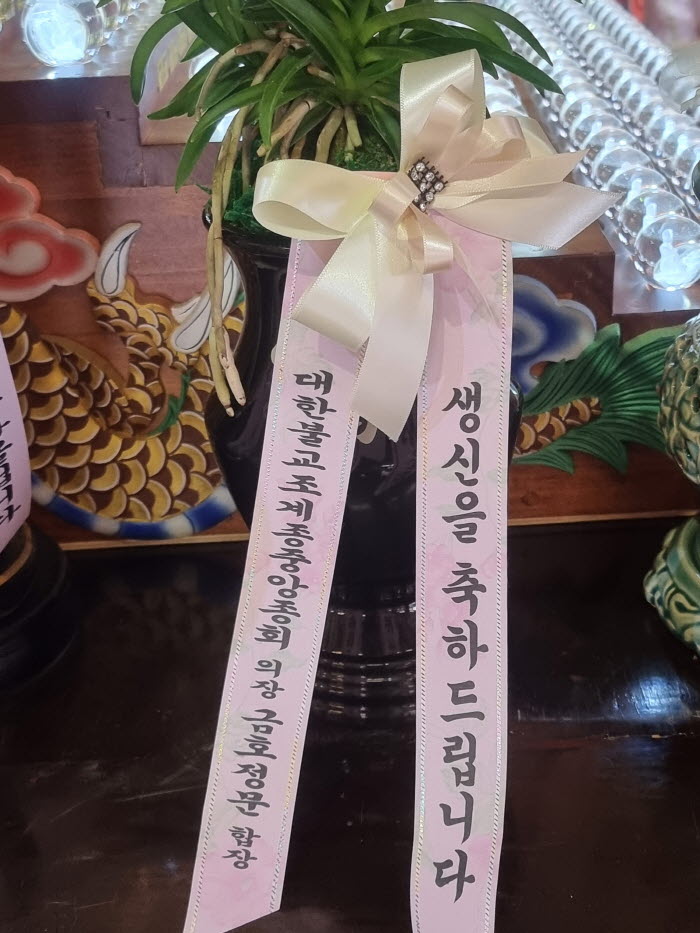 생신을 축하드립니다
대한불교조계종중앙종회 의장 금호정문 합장